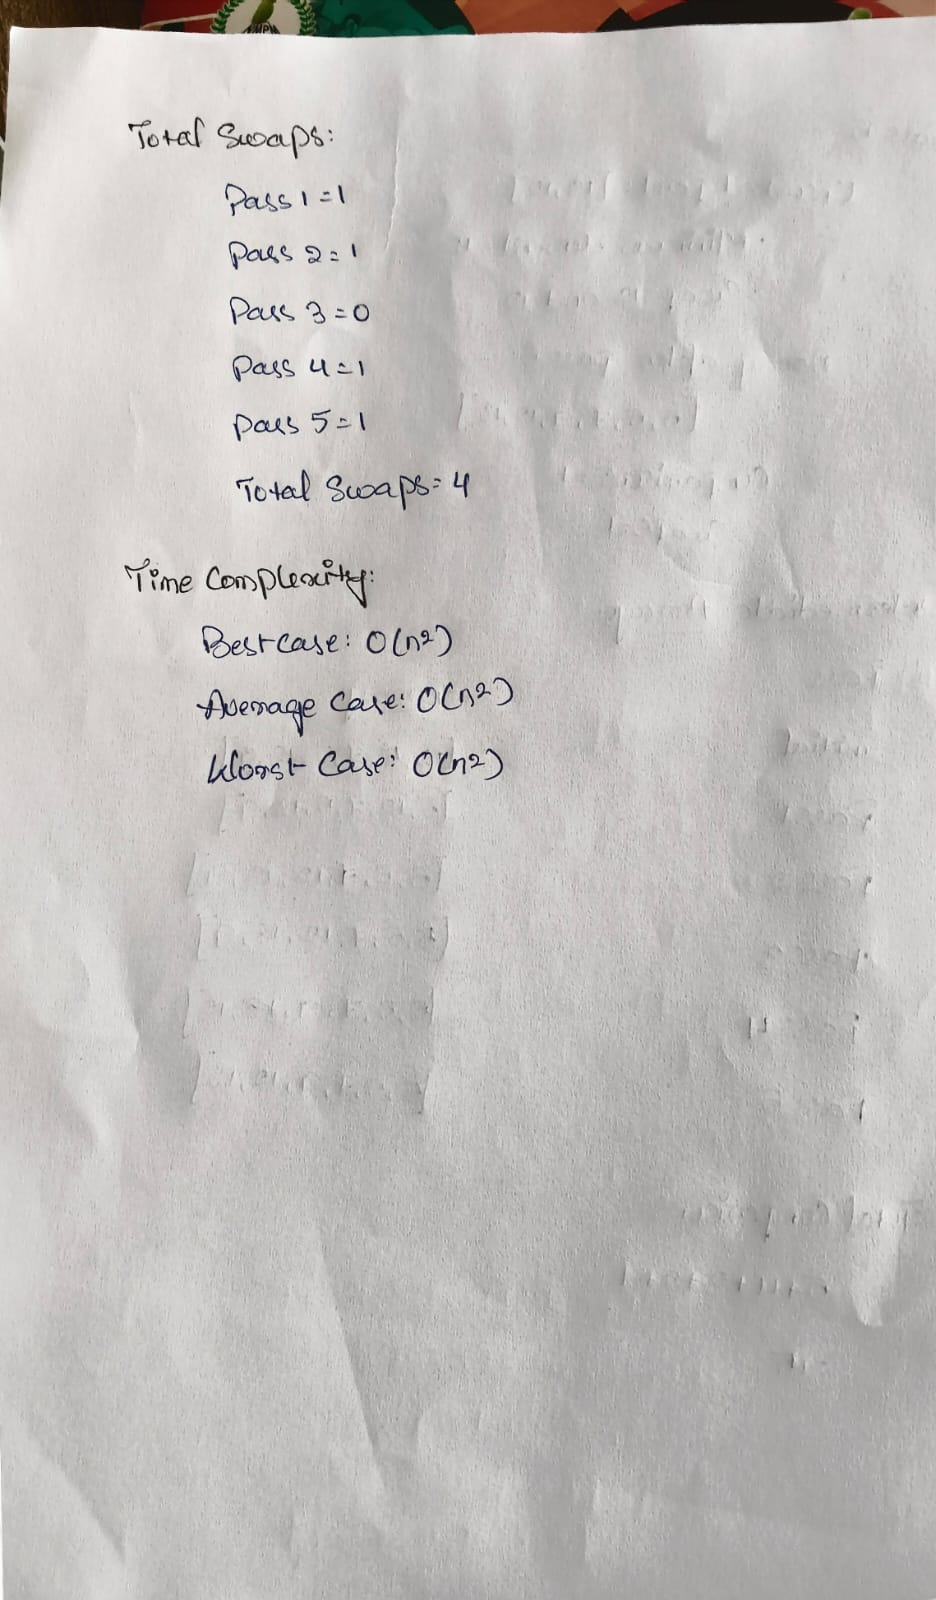 Total Swaps:
Pass 1 = 1
Pass 2 = 1
Pass 3 = 0
Pass 4 = 1
Pass 5 = 1
Total Swaps = 4
Time Complexity:
Best case: O(n²)
Average Case: O(n²)
Worst Case: O(n²)